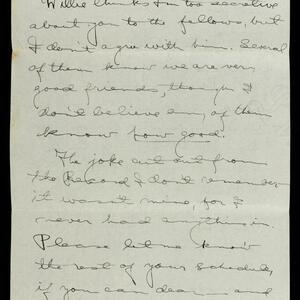 Willie thinks I'm too secretive
about you to the fellows, but
I don't agree with him. Several
of them know we are very
good friends, though I
don't believe any of them
know how good.
The joke cut out from
the Record I don't remember
it wasn't mine, for I
never had anything in.
Please let me know
the rest of your schedule,
if you can dear — and